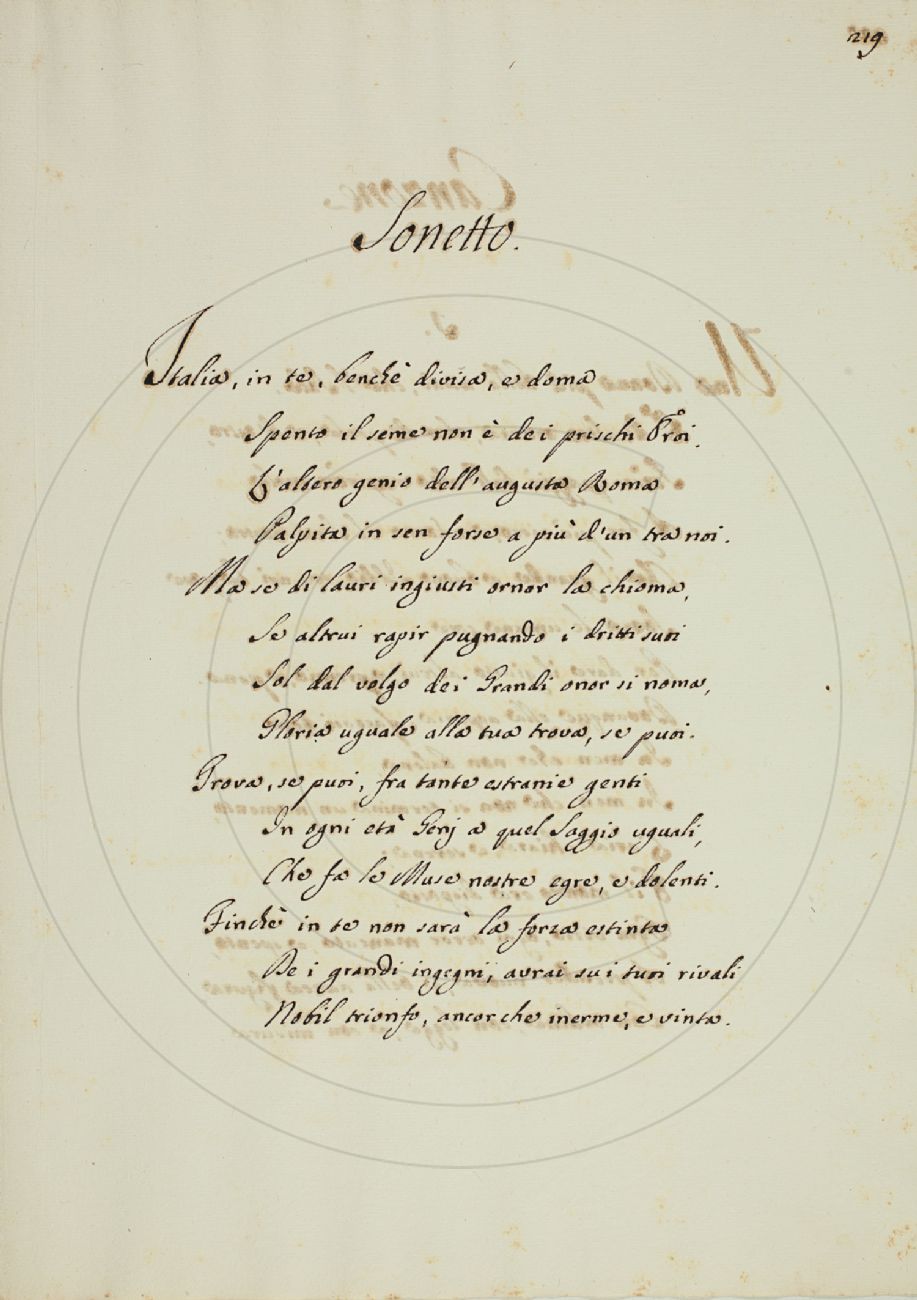 219
Sonetto.
Italia, in te, benchè divisa, e doma
Spento il seme non è dei prischi Eroi.
L'altero genio dell'augusta Roma
Palpita in sen forse a più d'un tra noi.
Ma se di lauri ingiusti ornor la chioma,
Se altrui rapir pugnando i dritti suoi
Sol dal volgo dei Grandi onor si noma,
Gloria uguale alla tua trova, se puoi.
Trova, se puoi, fra tante estranie genti
In ogni età Genj a quel Saggio uguali,
Che fa le Muse nostre egre, e dolenti.
Finchè in te non sarà la forza estinta
De i grandi ingegni, avrai su i tuoi rivali
Nobil trionfo, ancor che inerme, e vinta.